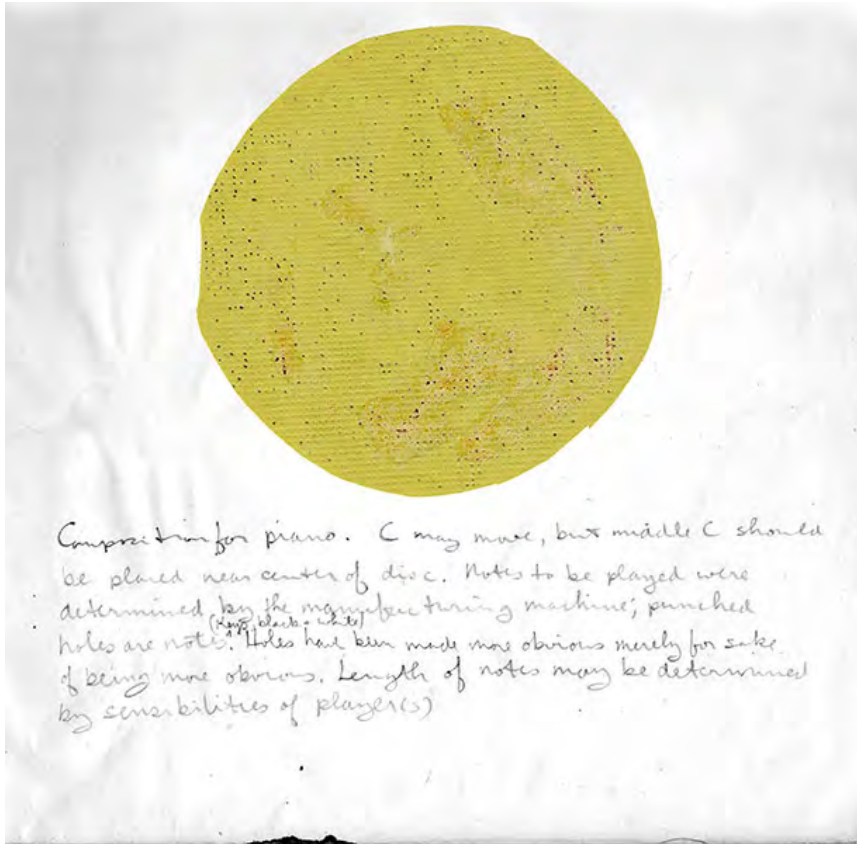 Composition for piano. C may move, but middle C should
be placed near center of disc. Notes to be played were
determined by the manufacturing machine; punched
(Keys, black + white)
holes are notes. Holes have been made more obvious merely for sake
of being more obvious. Length of notes may be determined
by sensibilities of player(s)